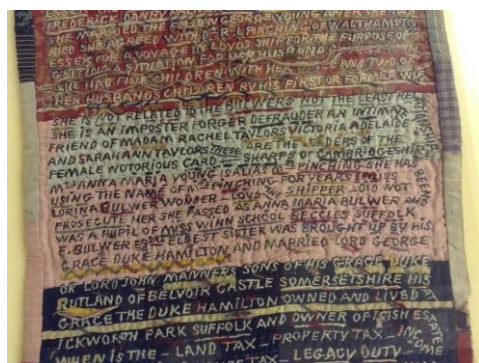 FREDERICK DANBY
SHE MARRIED THE GEORGE YOUNG AFTER SHE WAS
RIED SHE AGREED WITH DR L PINCHING OF WALTHAMSTO
ESSEX FOR A VOYAGE IN LOYDS SHIP FOR THE PURPOSE OF
GETTING A SITUATION FOR HER HUSBAND
SHE HAD FIVE CHILDREN WITH HER AND TWO OF
HER HUSBANDS CHILDREN BY HIS FIRST OR FORMER WIFE
SHE IS NOT RELATED TO THE BULWERS NOT THE LEAST RE
SHE IS AN IMPOSTER FORGER DEFRAUDER AN INTIMATE
FRIEND OF MADAM RACHEL TAYLORS VICTORIA ADELAIDE
AND SARAH ANN TAYLORS THESE ARE THE OF THE
FEMALE NOTORIOUS CARD SHARPS OF CAMBRIDGESHIRE
ANNA MARIA YOUNG ALIAS PINCHING SHE HAS BEEN
USING THE NAME OF PINCHING FOR YEARS I MISS
LORINA BULWER WONDER LOYD THE SHIPPER DID NOT
PROSECUTE HER SHE PASSED AS ANNA MARIA BULWER AND
WAS A PUPIL OF MISS WINN SCHOOL BECCLES SUFFOLK
E. BULWER ESQ ELDEST SISTER WAS BROUGHT UP BY HIS
GRACE DUKE HAMILTON AND MARRIED LORD GEORGE
OR LORD JOHN MANNERS SONS OF HIS GRACE DUKE
RUTLAND OF BELVOIR CASTLE SOMERSETSHIRE HIS
GRACE THE DUKE HAMILTON OWNED AND LIVED
ICKWORTH PARK SUFFOLK AND OWNER OF ESTATE
WHEN IS THE - LAND TAX - PROPERTY TAX - INCOME
TAX - LEGACY DUTY -